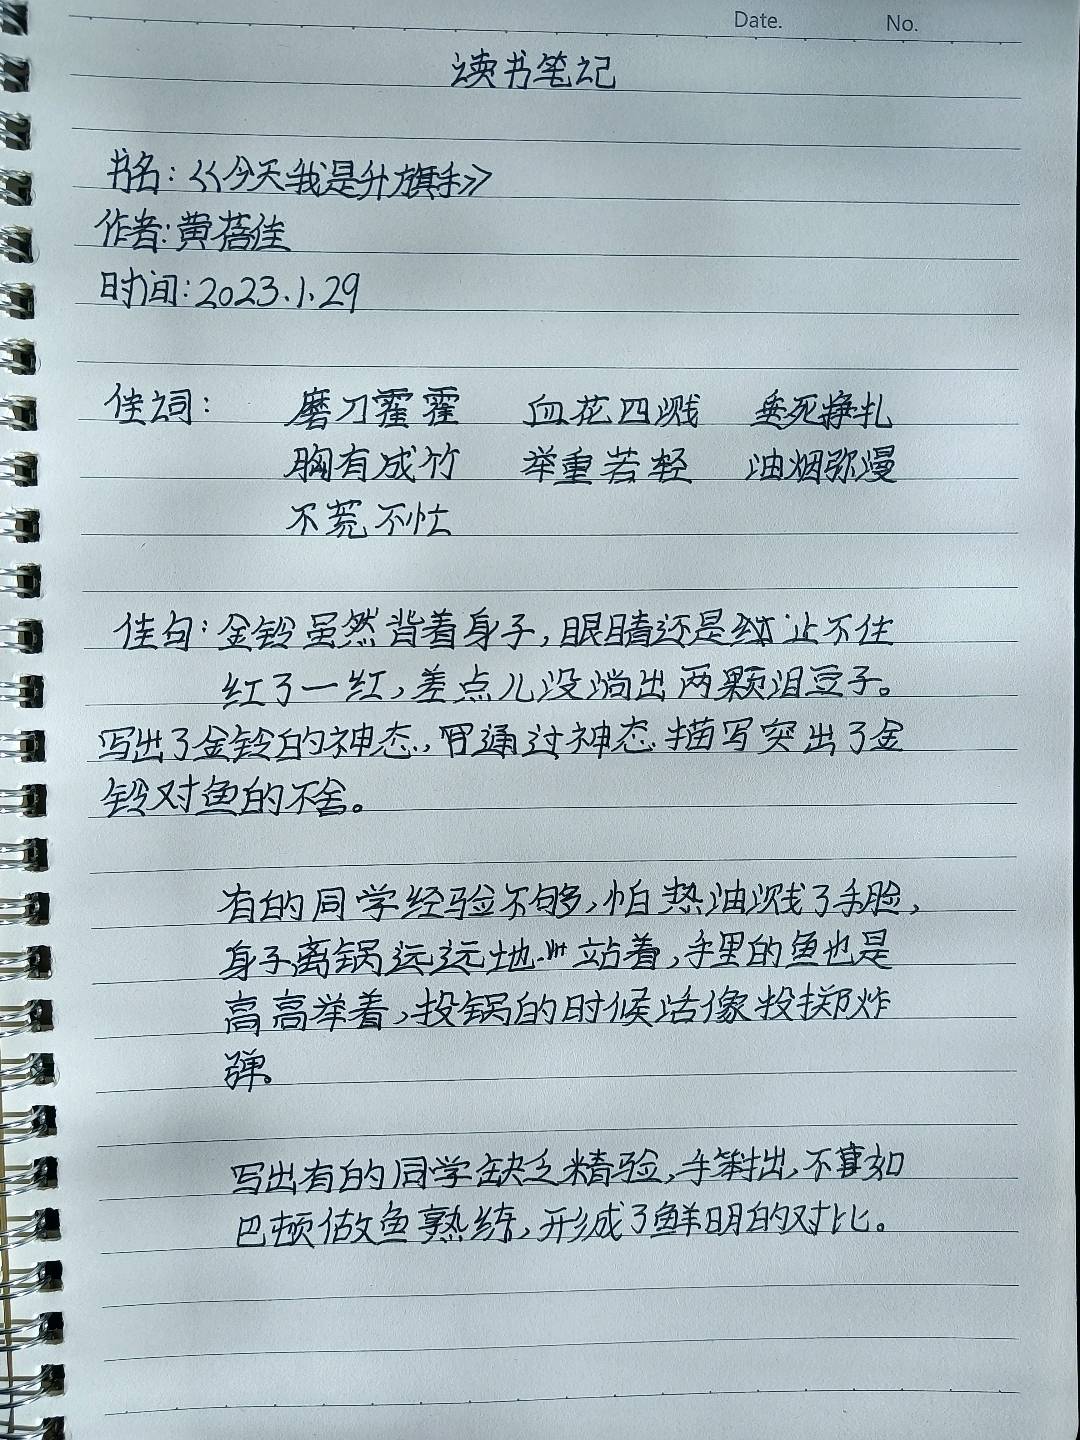 Date. No.
读书笔记
书名：《今天我是升旗手》
作者：黄蓓佳
时间：2023.1.29
佳词： 磨刀霍霍 血花四溅 垂死挣扎
胸有成竹 举重若轻 油烟弥漫
不荒不忙
佳句：金铃虽然背着身子，眼睛还是 止不住
红了一红，差点儿没淌出两颗泪豆子。
写出了金铃的神态， 通过神态描写突出了金
铃对鱼的不舍。
有的同学经验不够，怕热油溅了手脸，
身子离锅远远地 站着，手里的鱼也是
高高举着，投锅的时候活像投掷炸
弹。
写出有的同学缺乏精验，手 出，不 如
巴顿做鱼熟练，形成了鲜明的对比。